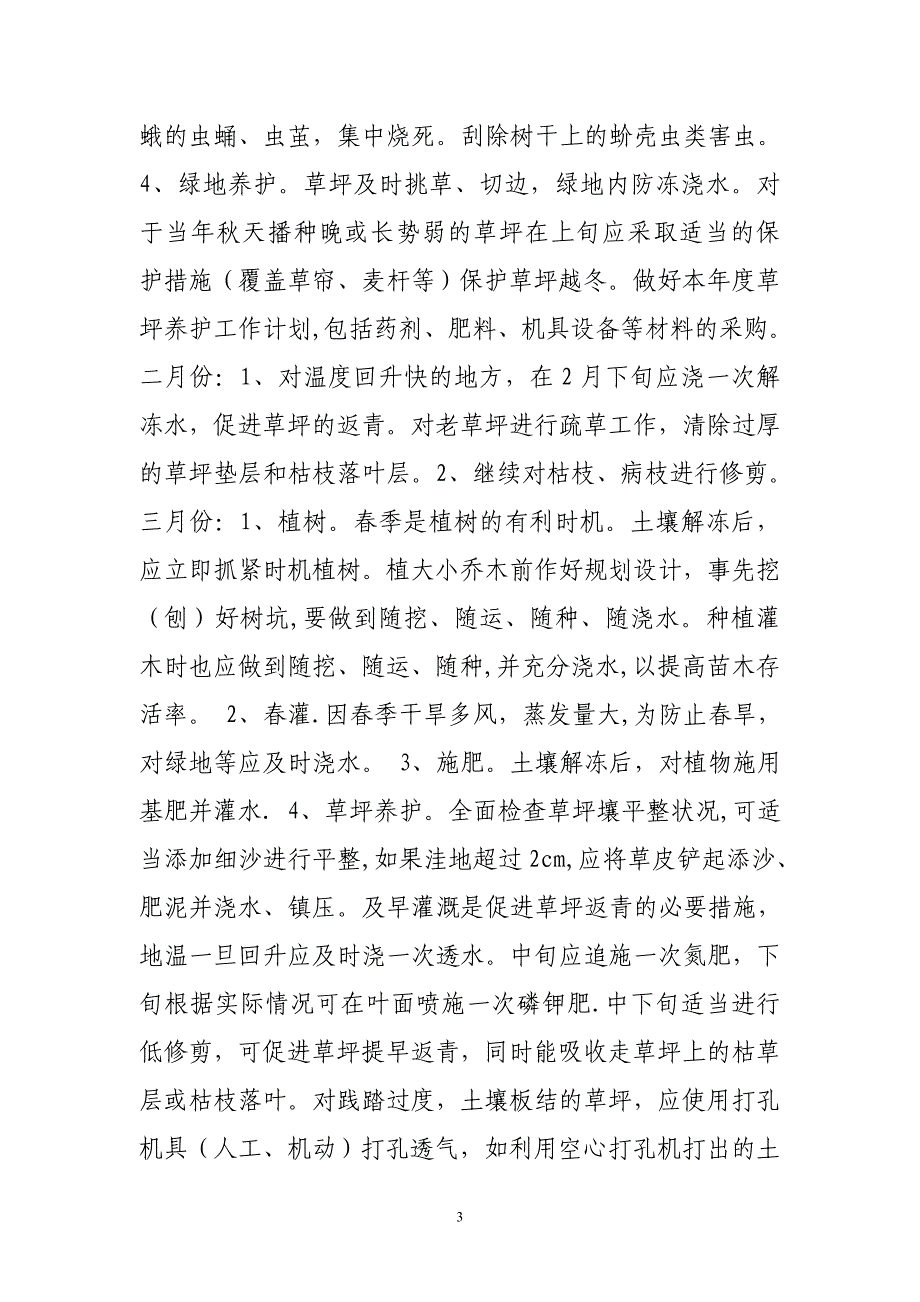 蛾的虫蛹、虫茧，集中烧死。刮除树干上的蚧壳虫类害虫。
4、绿地养护。草坪及时挑草、切边，绿地内防冻浇水。对
于当年秋天播种晚或长势弱的草坪在上旬应采取适当的保
护措施（覆盖草帘、麦杆等）保护草坪越冬。做好本年度草
坪养护工作计划,包括药剂、肥料、机具设备等材料的采购。
二月份：1、对温度回升快的地方，在2月下旬应浇一次解
冻水，促进草坪的返青。对老草坪进行疏草工作，清除过厚
的草坪垫层和枯枝落叶层。2、继续对枯枝、病枝进行修剪。
三月份：1、植树。春季是植树的有利时机。土壤解冻后，
应立即抓紧时机植树。植大小乔木前作好规划设计，事先挖
（刨）好树坑,要做到随挖、随运、随种、随浇水。种植灌
木时也应做到随挖、随运、随种,并充分浇水,以提高苗木存
活率。 2、春灌.因春季干旱多风，蒸发量大,为防止春旱，
对绿地等应及时浇水。 3、施肥。土壤解冻后，对植物施用
基肥并灌水. 4、草坪养护。全面检查草坪壤平整状况,可适
当添加细沙进行平整,如果洼地超过2cm,应将草皮铲起添沙、
肥泥并浇水、镇压。及早灌溉是促进草坪返青的必要措施，
地温一旦回升应及时浇一次透水。中旬应追施一次氮肥，下
旬根据实际情况可在叶面喷施一次磷钾肥.中下旬适当进行
低修剪，可促进草坪提早返青，同时能吸收走草坪上的枯草
层或枯枝落叶。对践踏过度，土壤板结的草坪，应使用打孔
机具（人工、机动）打孔透气，如利用空心打孔机打出的土
3